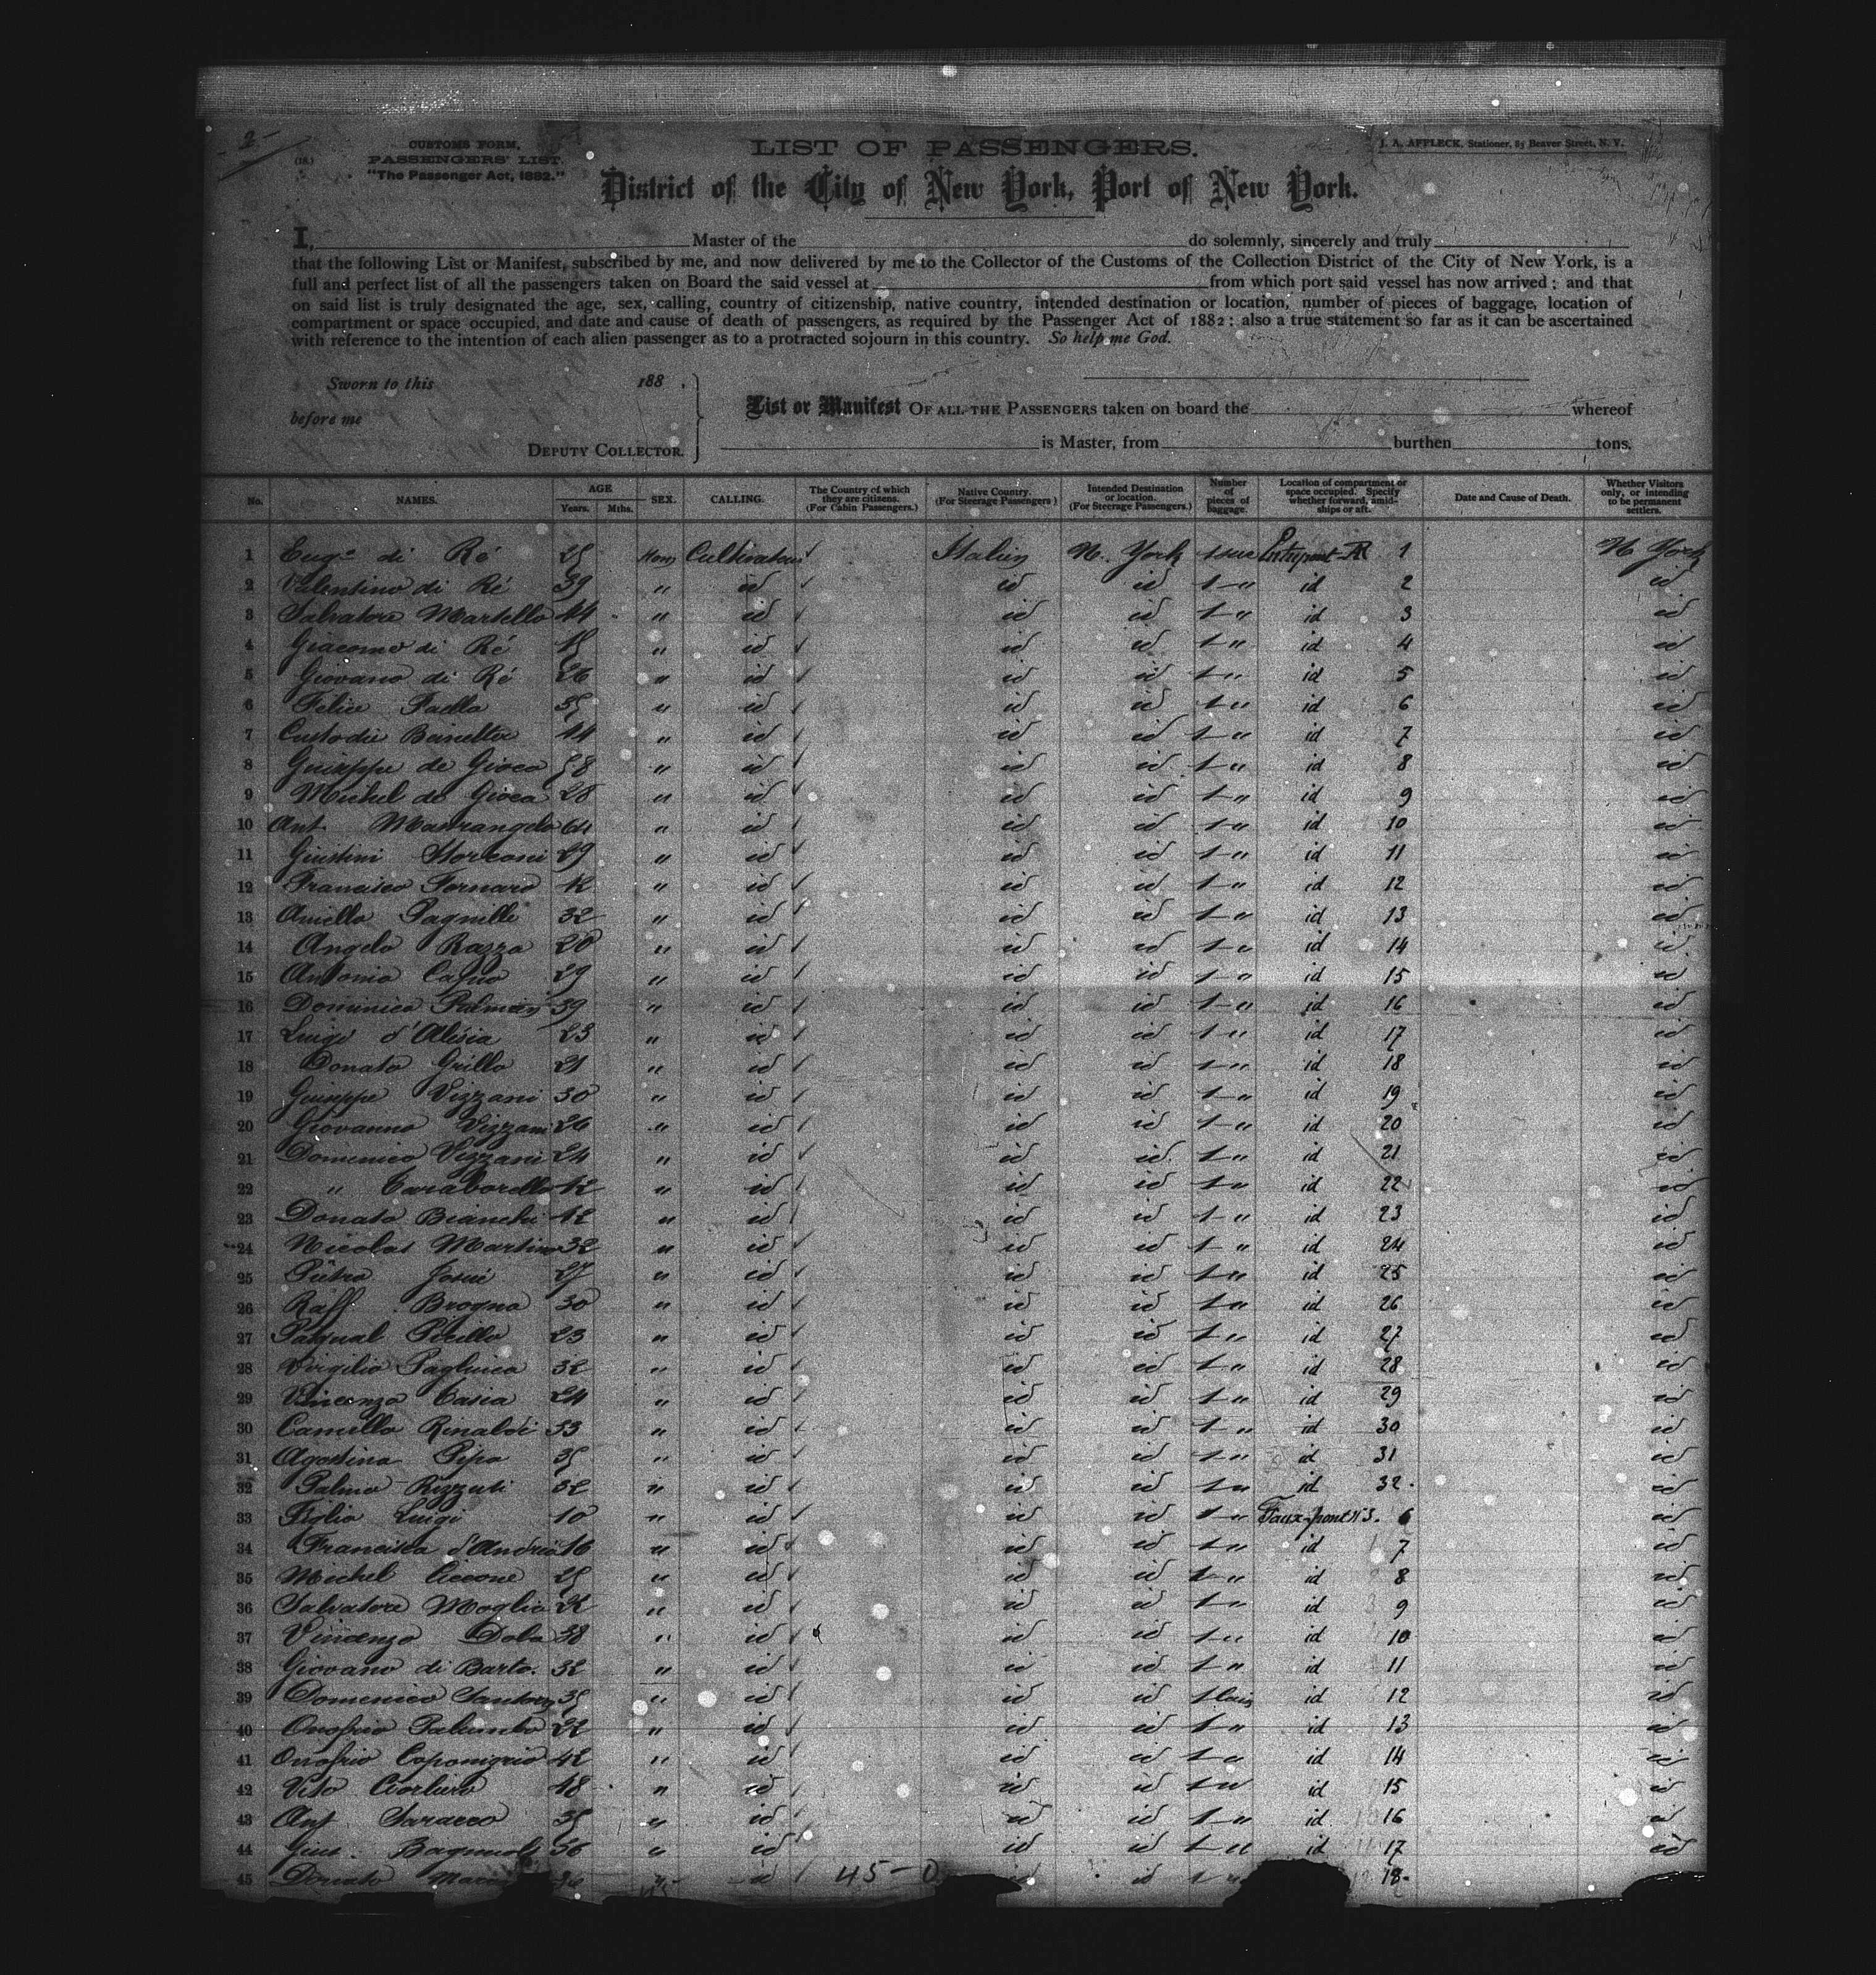 2-
CUSTOMS FORM,
(18.) PASSENGERS' LIST.
"The Passenger Act, 1882."
LIST OF PASSENGERS.
J. A. AFFLECK, Stationer, 87 Beaver Street, N. Y.
District of the City of New York, Port of New York.
I, Master of the do solemnly, sincerely and truly
that the following List or Manifest, subscribed by me, and now delivered by me to the Collector of the Customs of the Collection District of the City of New York, is a
full and perfect list of all the passengers taken on Board the said vessel at from which port said vessel has now arrived; and that
on said list is truly designated the age, sex, calling, country of citizenship, native country, intended destination or location, number of pieces of baggage, location of
compartment or space occupied, and date and cause of death of passengers, as required by the Passenger Act of 1882; also a true statement so far as it can be ascertained
with reference to the intention of each alien passenger as to a protracted sojourn in this country. So help me God.
Sworn to this 188 .
before me
DEPUTY COLLECTOR.
List or Manifest OF ALL THE PASSENGERS taken on board the whereof
is Master, from burthen tons.
No. NAMES. AGE Years. Mths. SEX. CALLING. The Country of which they are citizens. (For Cabin Passengers.) Native Country. (For Steerage Passengers) Intended Destination or location. (For Steerage Passengers.) Number of pieces of baggage. Location of compartment or space occupied. Specify whether forward, amidships or aft. Date and Cause of Death. Whether Visitors only, or intending to be permanent settlers.
1 di Ré 25 Cultivateur Italien N. York 1 1 N York
2 Valentino di Ré 39 " id id id 1 " id 2 id
3 Salvatore Martello 44 " id id id 1 " id 3 id
4 Giacomo di Ré " id id id 1 " id 4 id
5 Giovano di Ré 26 " id id id 1 " id 5 id
6 Felice Faella 35 " id id id 1 " id 6 id
7 Custodie 44 " id id id 1 " id 7 id
8 Guiseppe de Gioca 58 " id id id 1 " id 8 id
9 Michel de Gioca 28 " id id id 1 " id 9 id
10 Ant. Masrangelo 64 " id id id 1 " id 10 id
11 Giustini 29 " id id id 1 " id 11 id
12 Francisco Fornaro " id id id 1 " id 12 id
13 Aniello 32 " id id id 1 " id 13 id
14 Angelo Razza 20 " id id id 1 " id 14 id
15 Antonio 29 " id id id 1 " id 15 id
16 Dominico 39 " id id id 1 " id 16 id
17 Luigi d'Alésia 23 " id id id 1 " id 17 id
18 Donato Grillo 21 " id id id 1 " id 18 id
19 Guiseppe Vizzani 30 " id id id 1 " id 19 id
20 Giovanno Vizzani 26 " id id id 1 " id 20 id
21 Domenico Vizzani 24 " id id id 1 " id 21 id
22 " " id id id 1 " id 22 id
23 Donato Bianchi 42 " id id id 1 " id 23 id
24 Nicolas Martino 32 " id id id 1 " id 24 id
25 Pietro Josué 27 " id id id 1 " id 25 id
26 Raff. Brogna 30 " id id id 1 " id 26 id
27 Pasqual 23 " id id id 1 " id 27 id
28 Virgilio Pagliuca 32 " id id id 1 " id 28 id
29 Vincenzo Casia 24 " id id id 1 " id 29 id
30 Camillo Rinaldi 33 " id id id 1 " id 30 id
31 Agostina Pipa 35 " id id id 1 " id 31 id
32 Palmo Rizzuti 32 " id id id 1 " id 32. id
33 Figlio Luigi 10 " id id id 1 " Faux-pont N 3. 6 id
34 Francisca d'Andréa 16 " id id id 1 " id 7 id
35 Michel Ciccone 25 " id id id 1 " id 8 id
36 Salvatore Moglia 22 " id id id 1 " id 9 id
37 Vincenzo Dola 38 " id id id 1 " id 10 id
38 Giovano di Barto. 32 " id id id 1 " id 11 id
39 Domenico 35 " id id id 1 id 12 id
40 Onofrio Palumbo 22 " id id id 1 " id 13 id
41 Onofrio Caponigrio 42 " id id id 1 " id 14 id
42 Vito 48 " id id id 1 " id 15 id
43 Ant. Saracco 35 " id id id 1 " id 16 id
44 Gius. 36 " id id id 1 " id 17 id
45 Donato " id 45-0 id 1 " 18-